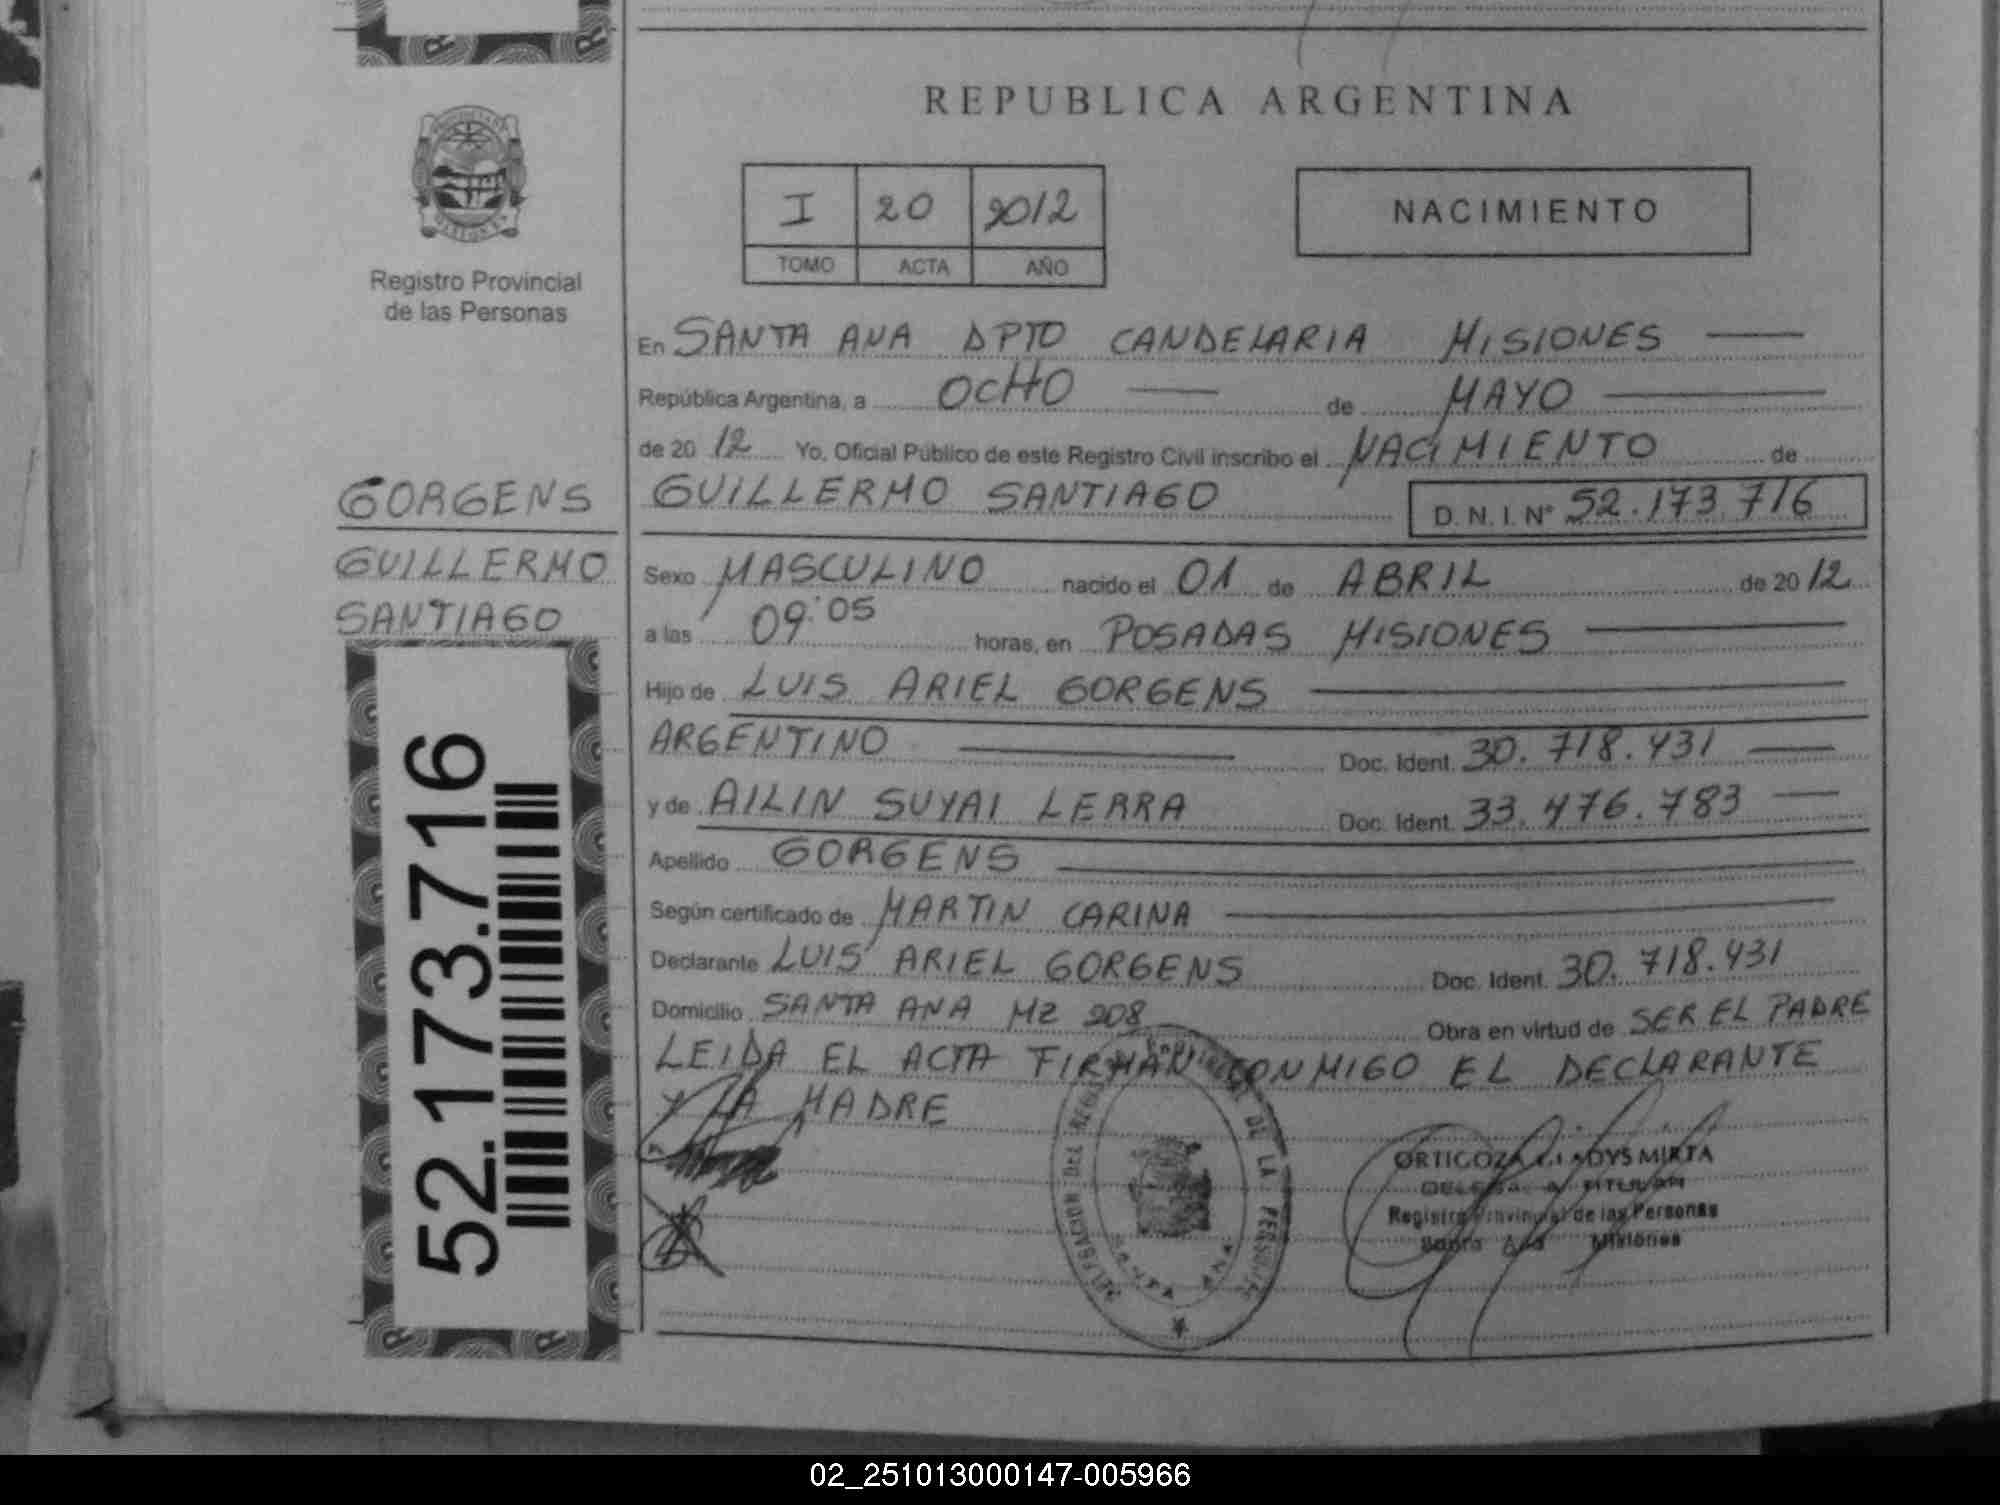 REPUBLICA ARGENTINA
I 20 2012
TOMO ACTA AÑO
NACIMIENTO
Registro Provincial
de las Personas
GORGENS
GUILLERMO
SANTIAGO
52.173.716
En SANTA ANA DPTO CANDELARIA MISIONES
República Argentina, a OCHO de MAYO
de 20 12 Yo, Oficial Público de este Registro Civil inscribo el NACIMIENTO de
GUILLERMO SANTIAGO D. N. I. N° 52.173.716
Sexo MASCULINO nacido el 01 de ABRIL de 20 12
a las 09:05 horas, en POSADAS MISIONES
Hijo de LUIS ARIEL GORGENS
ARGENTINO Doc. Ident. 30.718.431
y de AILIN SUYAI LERRA Doc. Ident. 33.476.783
Apellido GORGENS
Según certificado de MARTIN CARINA
Declarante LUIS ARIEL GORGENS Doc. Ident. 30.718.431
Domicilio SANTA ANA MZ 208 Obra en virtud de SER EL PADRE
LEIDA EL ACTA FIRMAN CONMIGO EL DECLARANTE
Y LA MADRE
DELEGACION DEL DE LA
SANTA ANA
ORTIGOZA GLADYS MIRTA
DELEGADA TITULAR
Registro Provincial de las Personas
Santa Ana Misiones
02_251013000147-005966